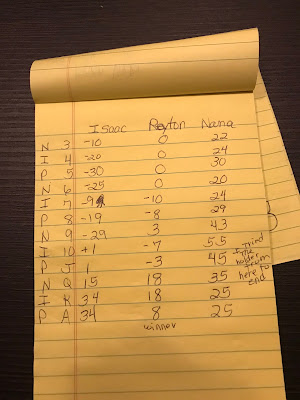 Isaac Peyton Nana
N 3 -10 0 22
I 4 -20 0 24
P 5 -30 0 30
N 6 -25 0 20
I 7 -9 -10 24
P 8 -19 -8 29
N 9 -29 3 43
I 10 +1 -7 55
P J 1 -3 45
N Q 15 18 35
I K 34 18 25
P A 34 8 25
winner
I tried
the
holder
from
here to
end